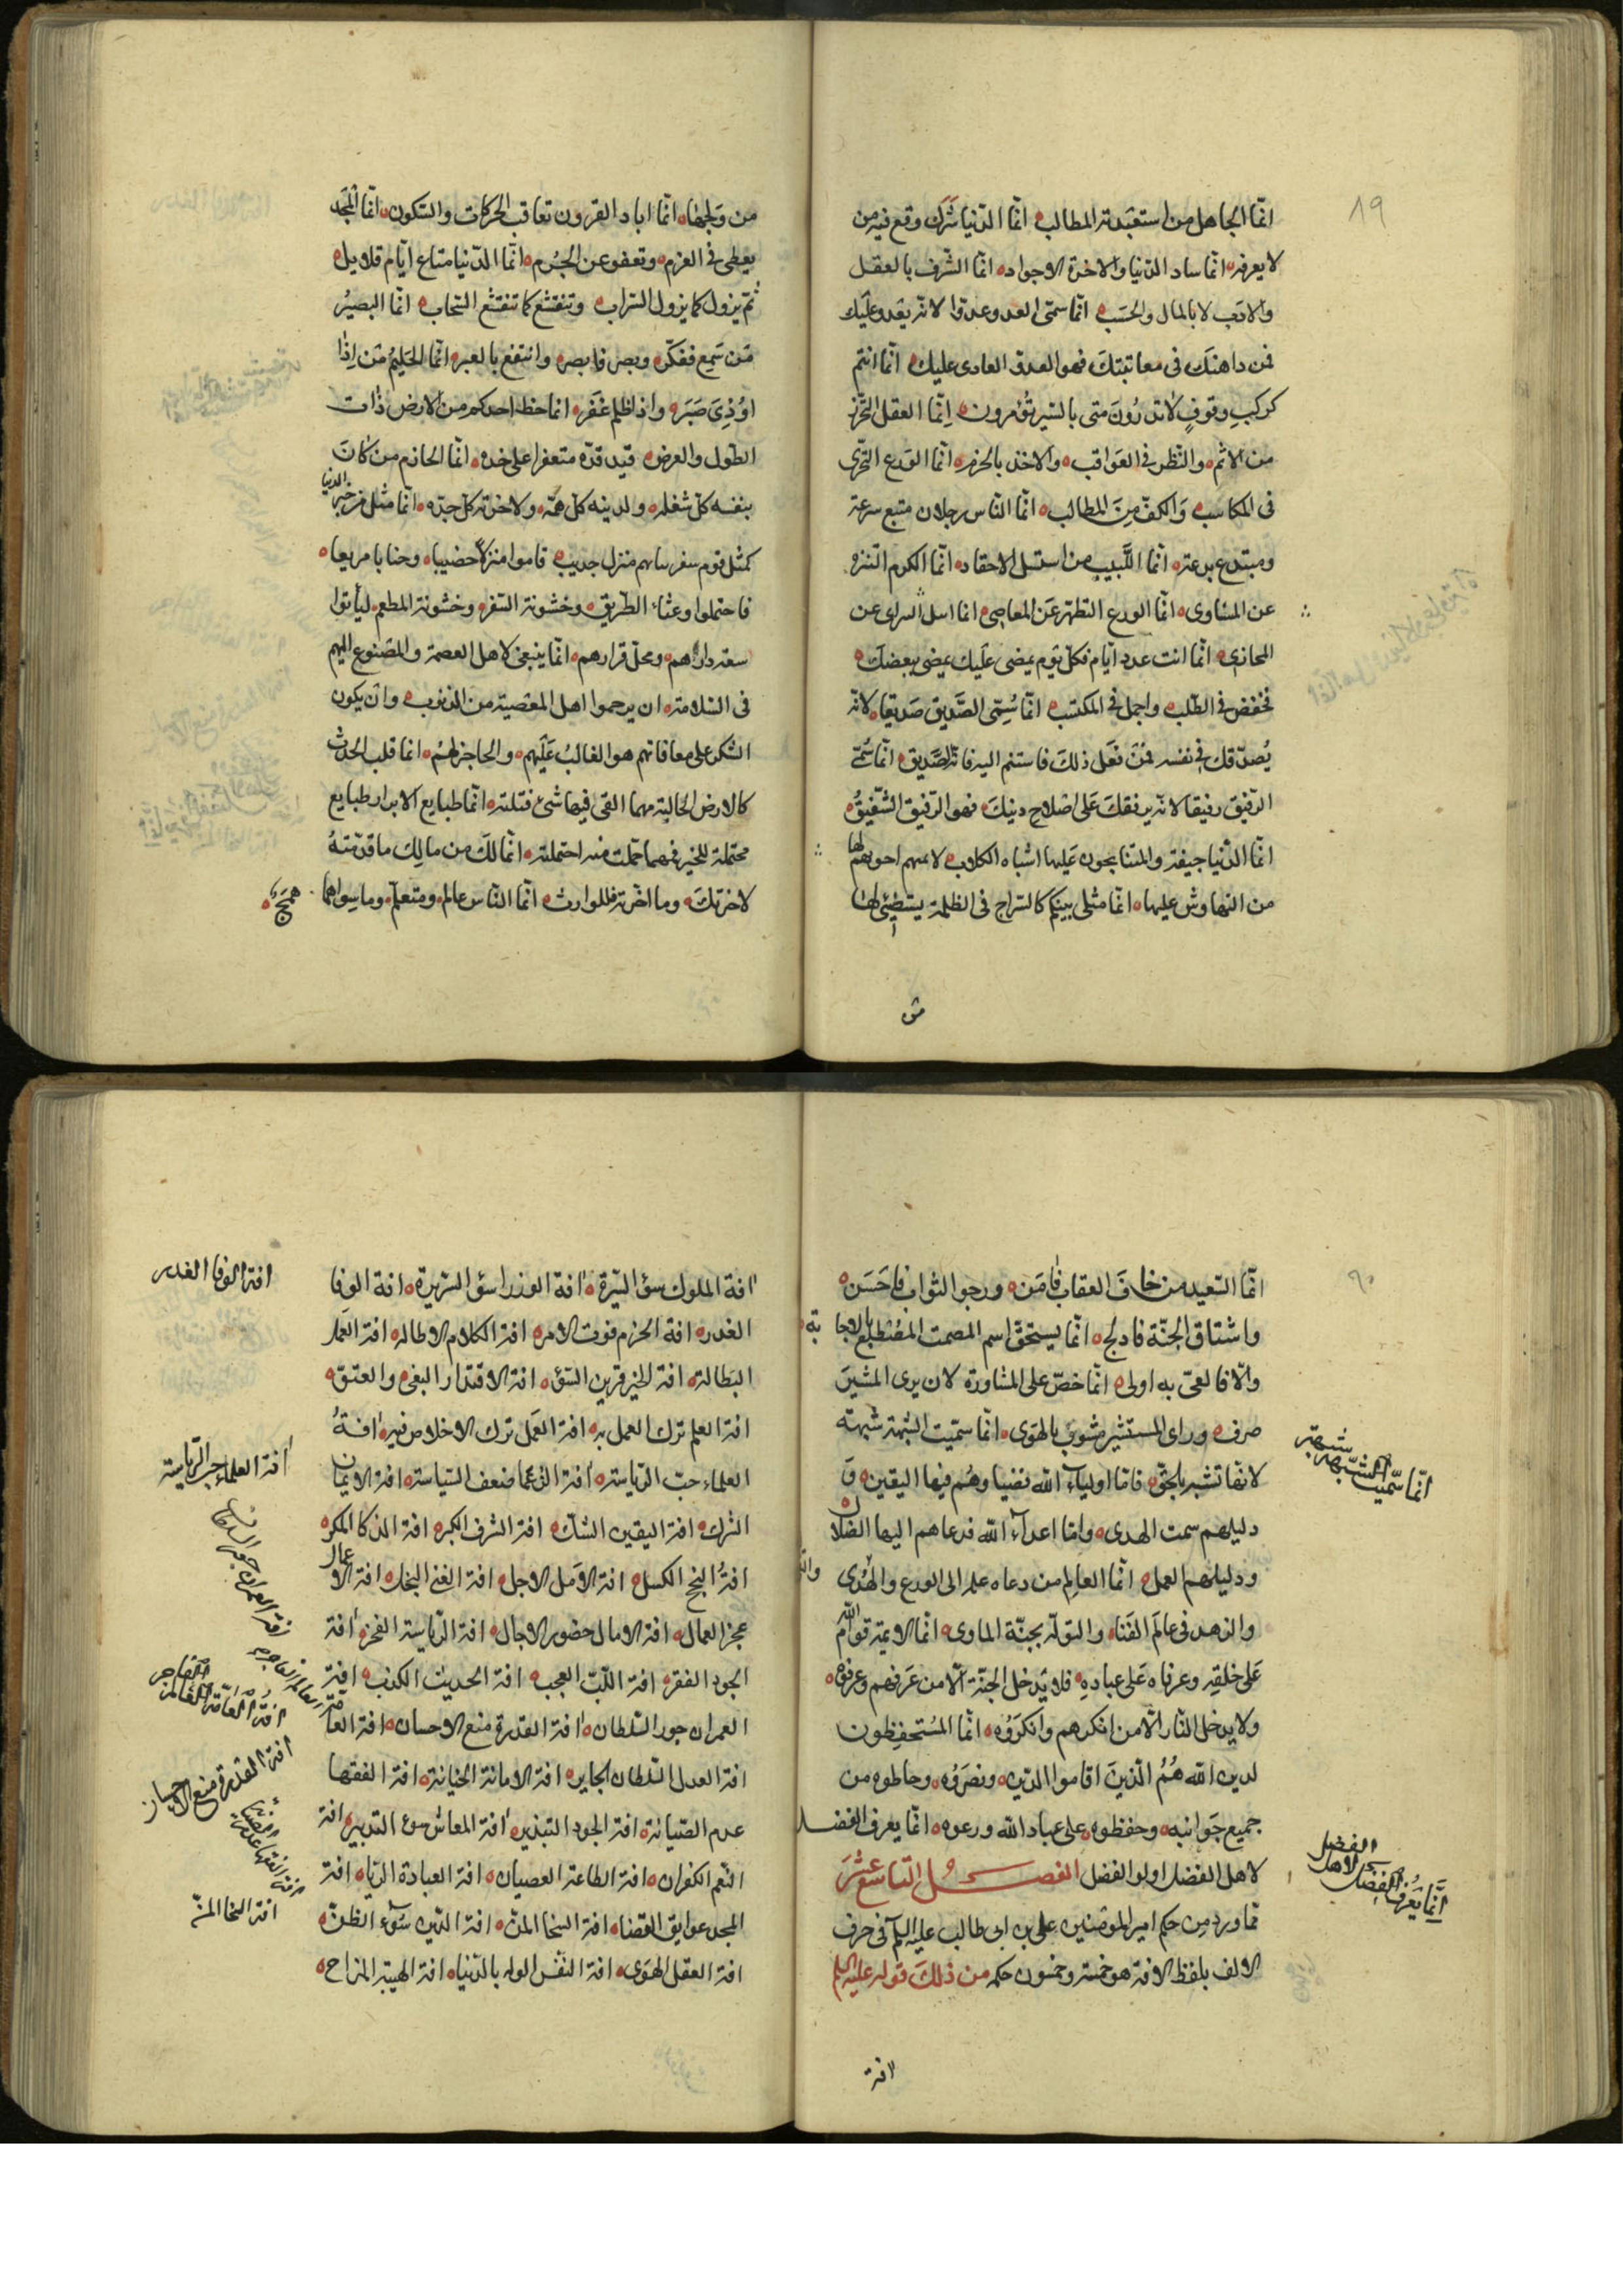 ١٩
انّما الجاهل من استعبدته المطالب انّما الدّنيا شرك وقع فيه من
لا يعرفه انّما ساد الدّنيا والاخرة الاجواد انّما الشّرف بالعقل
والادب لا بالمال والحسب انّما سمّى العدو عدوّا لانّه يعدو عليك
فمن داهنك فى معايبك فهو العدوّ العادى عليك انّما انتم
كركب وقوفٍ لا تدرون متى بالسير تؤمرون اِنّما العقل التحرّز
من الاثم والنّظر فى العواقب والاخذ بالحزم انّما الورع التحرّى
فى المكاسب وَالكفّ مِنَ المطالب انّما النّاس رجلان متبع شرعة
ومبتدع بدعة انّما اللّبيب من استسل الاحقاد انّما الكرم التنزه
عن المساوى انّما الورع التطهر عَن المعاصى انما اسل السراى عن
المحازى انّما انت عدد ايّام فكلّ يَوم يمضى عليك يمضى ببعضك
فخفض فى الطّلب واجمل فى المكتسب انّما سُمّى الصَّديق صَديقا لانّه
يُصدّقك فى نفسه فمَن فَعَل ذلكَ فاستنم اليه فانّه الصَّديق انّما سُمّى
الرّفيق رفيقا لانّه يرفقك عَلى اصلاح دينكَ فهو الرّفيق الشّفيقُ
انّما الدّنيا جيفة والمتنابحون عَليها اشباه الكلاب لا يمنعهم اخوّتهم لها
من التهاوش عليها انّما مثلى بينكم كالسّراج فى الظلمة يستضيئى لها
من
من وَلجها انّما اباد القرون تعاقب الحركات والسّكون انّما المَجد
يعطى فى الغرم وتعفو عن الجُرم انّما الدّنيا متاع ايّام قلايل
ثمّ يزول كما يزول السّراب وتنقشع كما تنقشع السّحاب انّما البصيرُ
مَن سَمِع ففكّر وبصر فابصر وانتفع بالعبر انّما الحَليمُ مَن اِذٰا
اوُذِىَ صَبَرَ واذا ظلم غَفَر انما حظ احدكم من الارض ذات
الطّول والعرض قيد قدّه متعفرا على خده انّما الحازم من كانَ
بنفسه كلّ شغله ولدينه كلّ همّه ولاخرته كلّ جدّه انّما مثل من خبر الدنيا
كمثل قوم سفر نبابهم منزل جديب فاموا منزلا خصيبا وجنابا مريعا
فاحتملوا وعثاء الطّريق وخشونة السّفر وخشونة المطعم ليأتوا
سعة دارهم ومحلّ قرارهم انّما ينبغى لاهل العصمة والمصنوع اليهم
فى السّلامة ان يرحموا اهل المعصية من الذنوب وان يكون
الشكر على معافاتهم هو الغالبُ عَلَيهم والحاجز لهُم انما قلب الحدث
كالارض الخالية مهما القى فيها شئ قبلته انّما طبايع الابرار طبايع
محتملة للخير فمهما حملت منه احتملته انّما لكَ من مالِك ما قدّمتهُ
لاخرتكَ وما اخّرته فللوارث انّما النّاس عالم ومتعلّم وما سِواهما
همَج
٩٠
انّما السّعيد من خافَ العقاب فامَن ورجو الثواب فاحسَن
واشتاق الجنّة فادلج انّما يستحقّ اسم الصمت المضطلع بالاجا
بة
والّا فالعىّ به اولى انّما حضّ على المشاورة لان يرى المشيرَ
صرف وراى المستشير مشوب بالهَوى انّما سمّيت الشبهة شبهة
لانّها تشبه بالحقّ فامّا اولياء اللّه فضيا وهُم فيها اليقين وَ
دليلهم سمت الهدى وامّا اعداء اللّه فدعاهم اليها الضلان
ودليلهم العمل انّما العالم من دعاه علمه الى الورع والتّقى
والزهد فى عالَم الفَناء والتولّه بجنّة الماوى انّما الايمة قوّام اللّه
عَلى خلقِهِ وعرفاءه عَلى عبادهِ فلا يَدخل الجنّة الّا من عَرَفهم وعرفوه
ولا يدخل النّار الّا من انكرهم وانكرَوُه انّما المُستَحفِظون
لدين اللّه هُمُ الّذينَ اقاموا الدّين ونصَروُه وحاطوه من
جميع جَوانبه وحفظوه على عباد اللّه ورعوه انّما يعرف الفضل
لاهل الفضل اولو الفضل الفصل التّاسع عشَر
ممّا ورد من حكم امير المؤمنين على بن ابى طالب عليه السلم فى حرف
الالف بلفظ الافة هو خمسة وخمسون حكمه من ذلك قوله عليه السلم
انّما سمّيت الشبهة شبهة
انّما يَعرفُ الفضل لاهل الفضل
افة
افة الملوك سوٓ السيّرة افة الوزرا سوٓ السّريرة افة الوفا
الغدر افة الحزم فوت الامر افة الكلام الاطالة افة العَمل
البَطالة افة الخير قرين السّوٓ افة الاقتدار البغى والعتوّ
افة العلم ترك العمل به افة العَمل ترك الاخلاص فيه افةُ
العلماء حبّ الرّياسة افة الزعما ضعف السّياسة افة الايمان
الشرك افة اليقين الشكّ افة الشرف الكبر افة الذكا المكر
افةُ النجح الكسل افة الامَل الاجل افة الغنى البخل افة الاعمال
عجز العمال افة الامال حضور الاجال افة الرّياسة الفخر افة
الجود الفقر افة اللّبّ العجب افة الحديث الكذب افة
العمران جور السّلطان افة القدرة منع الاحسان افة العامّة العالم الفاجر
افة العدل السّلطان الجاير افة الامانة الخيانة افة الفقها
عدم الصّيانة افة الجود التبذير افة المعاش سوء التدبير افة
النّعم الكفران افة الطاعة العصيان افة العبادة الرّيا افة
المجد عوايق القضا افة السخا المنّ افة الدّين سَوٓء الظنّ
افة العقل الهوى افة النّفس الوله بالدّنيا افة الهيبة المزاح
افة الوفا الغدر
افة العلماء حب الرّياسة
افة العمران جور السلطان
افةُ العامّة العالم الفاجر
افة القدرة منع الاحسان
افة الفقها عدم الصيانة
افة السخا المنّ